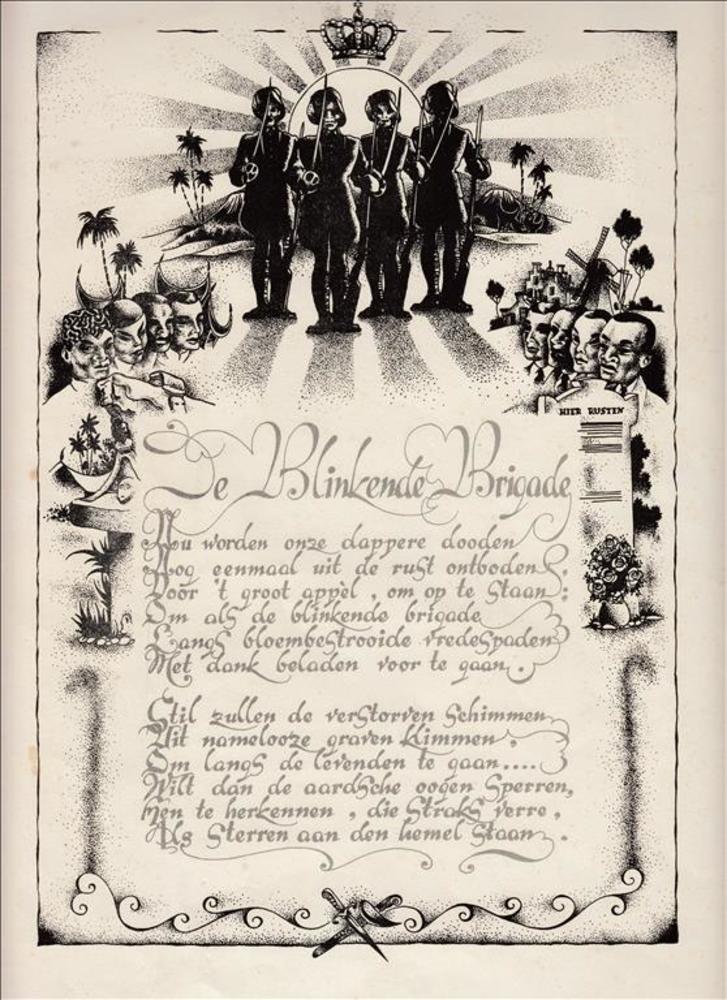 HIER RUSTEN
De Blinkende Brigade
Nou worden onze dappere dooden
Nog eenmaal uit de rust ontboden,
Voor 't groot appèl, om op te staan:
Om als de blinkende brigade
Langs bloembestrooide vredespaden
Met dank beladen voor te gaan.
Stil zullen de verstorven schimmen
Uit namelooze graven klimmen,
Om langs de levenden te gaan....
Wilt dan de aardsche oogen sperren,
Hen te herkennen, die straks verre,
Als sterren aan den hemel staan.